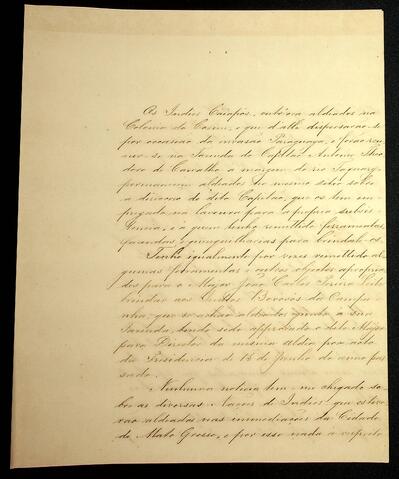 Os Indios Caiapós, outr'ora aldeados na
Colonia do Coxim, e que d'alli dispersarão-se
por occasião da invasão Paraguaya, e forão reu
nir-se na Fazenda do Capitão Antonio Theo
doro de Carvalho a margem do rio Taquary
permanecem aldeados no mesmo sitio sobre
a direcção do dito Capitão, que os tem em
pregado na lavoura para a propria subsis
tencia, e a quem tenho remettido ferramentas,
fazendas, e quinquilharias para brindal-os.
Tenho igualmente por vezes remettido al
gumas ferramentas e outros objectos apropria
dos para o Major João Carlos Pereira Leite
brindar aos Indios Bororós da Campa
nha, que se achão aldeados junto a sua
Fazenda, tendo sido approvado o dito Major
para Director da mesma aldêa por acto
da Presidencia de 18 de Junho do anno pas
sado.
Nenhuma noticia tem-me chegado so
bre as diversas Nações de Indios que estive
rão aldeados nas immediações da Cidade
de Mato Grosso, e por isso nada a respeito